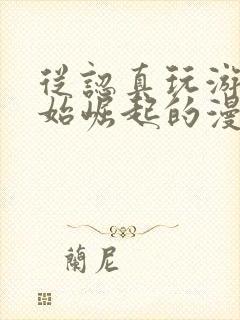 從認真玩游
始崛起的漫
蘭尼